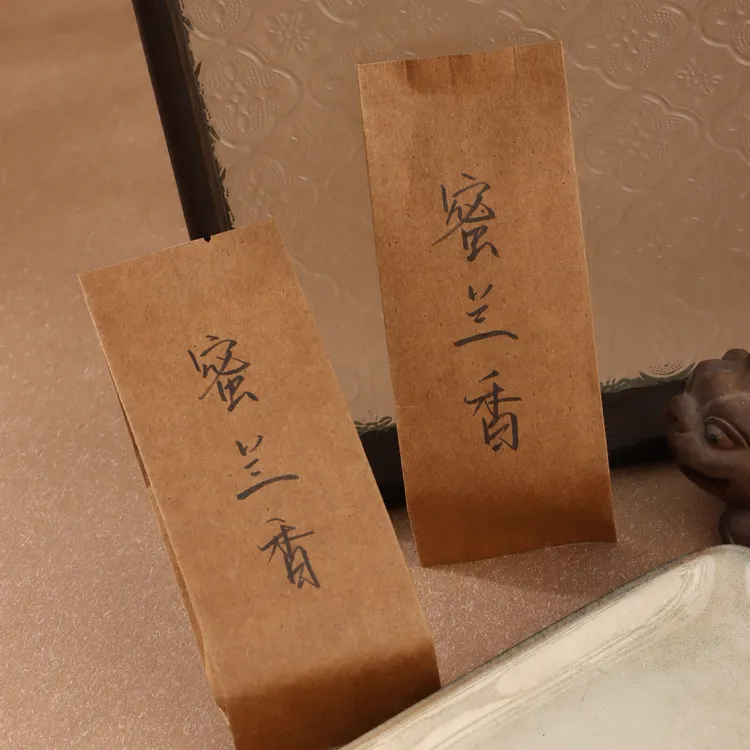 蜜兰香
蜜兰香